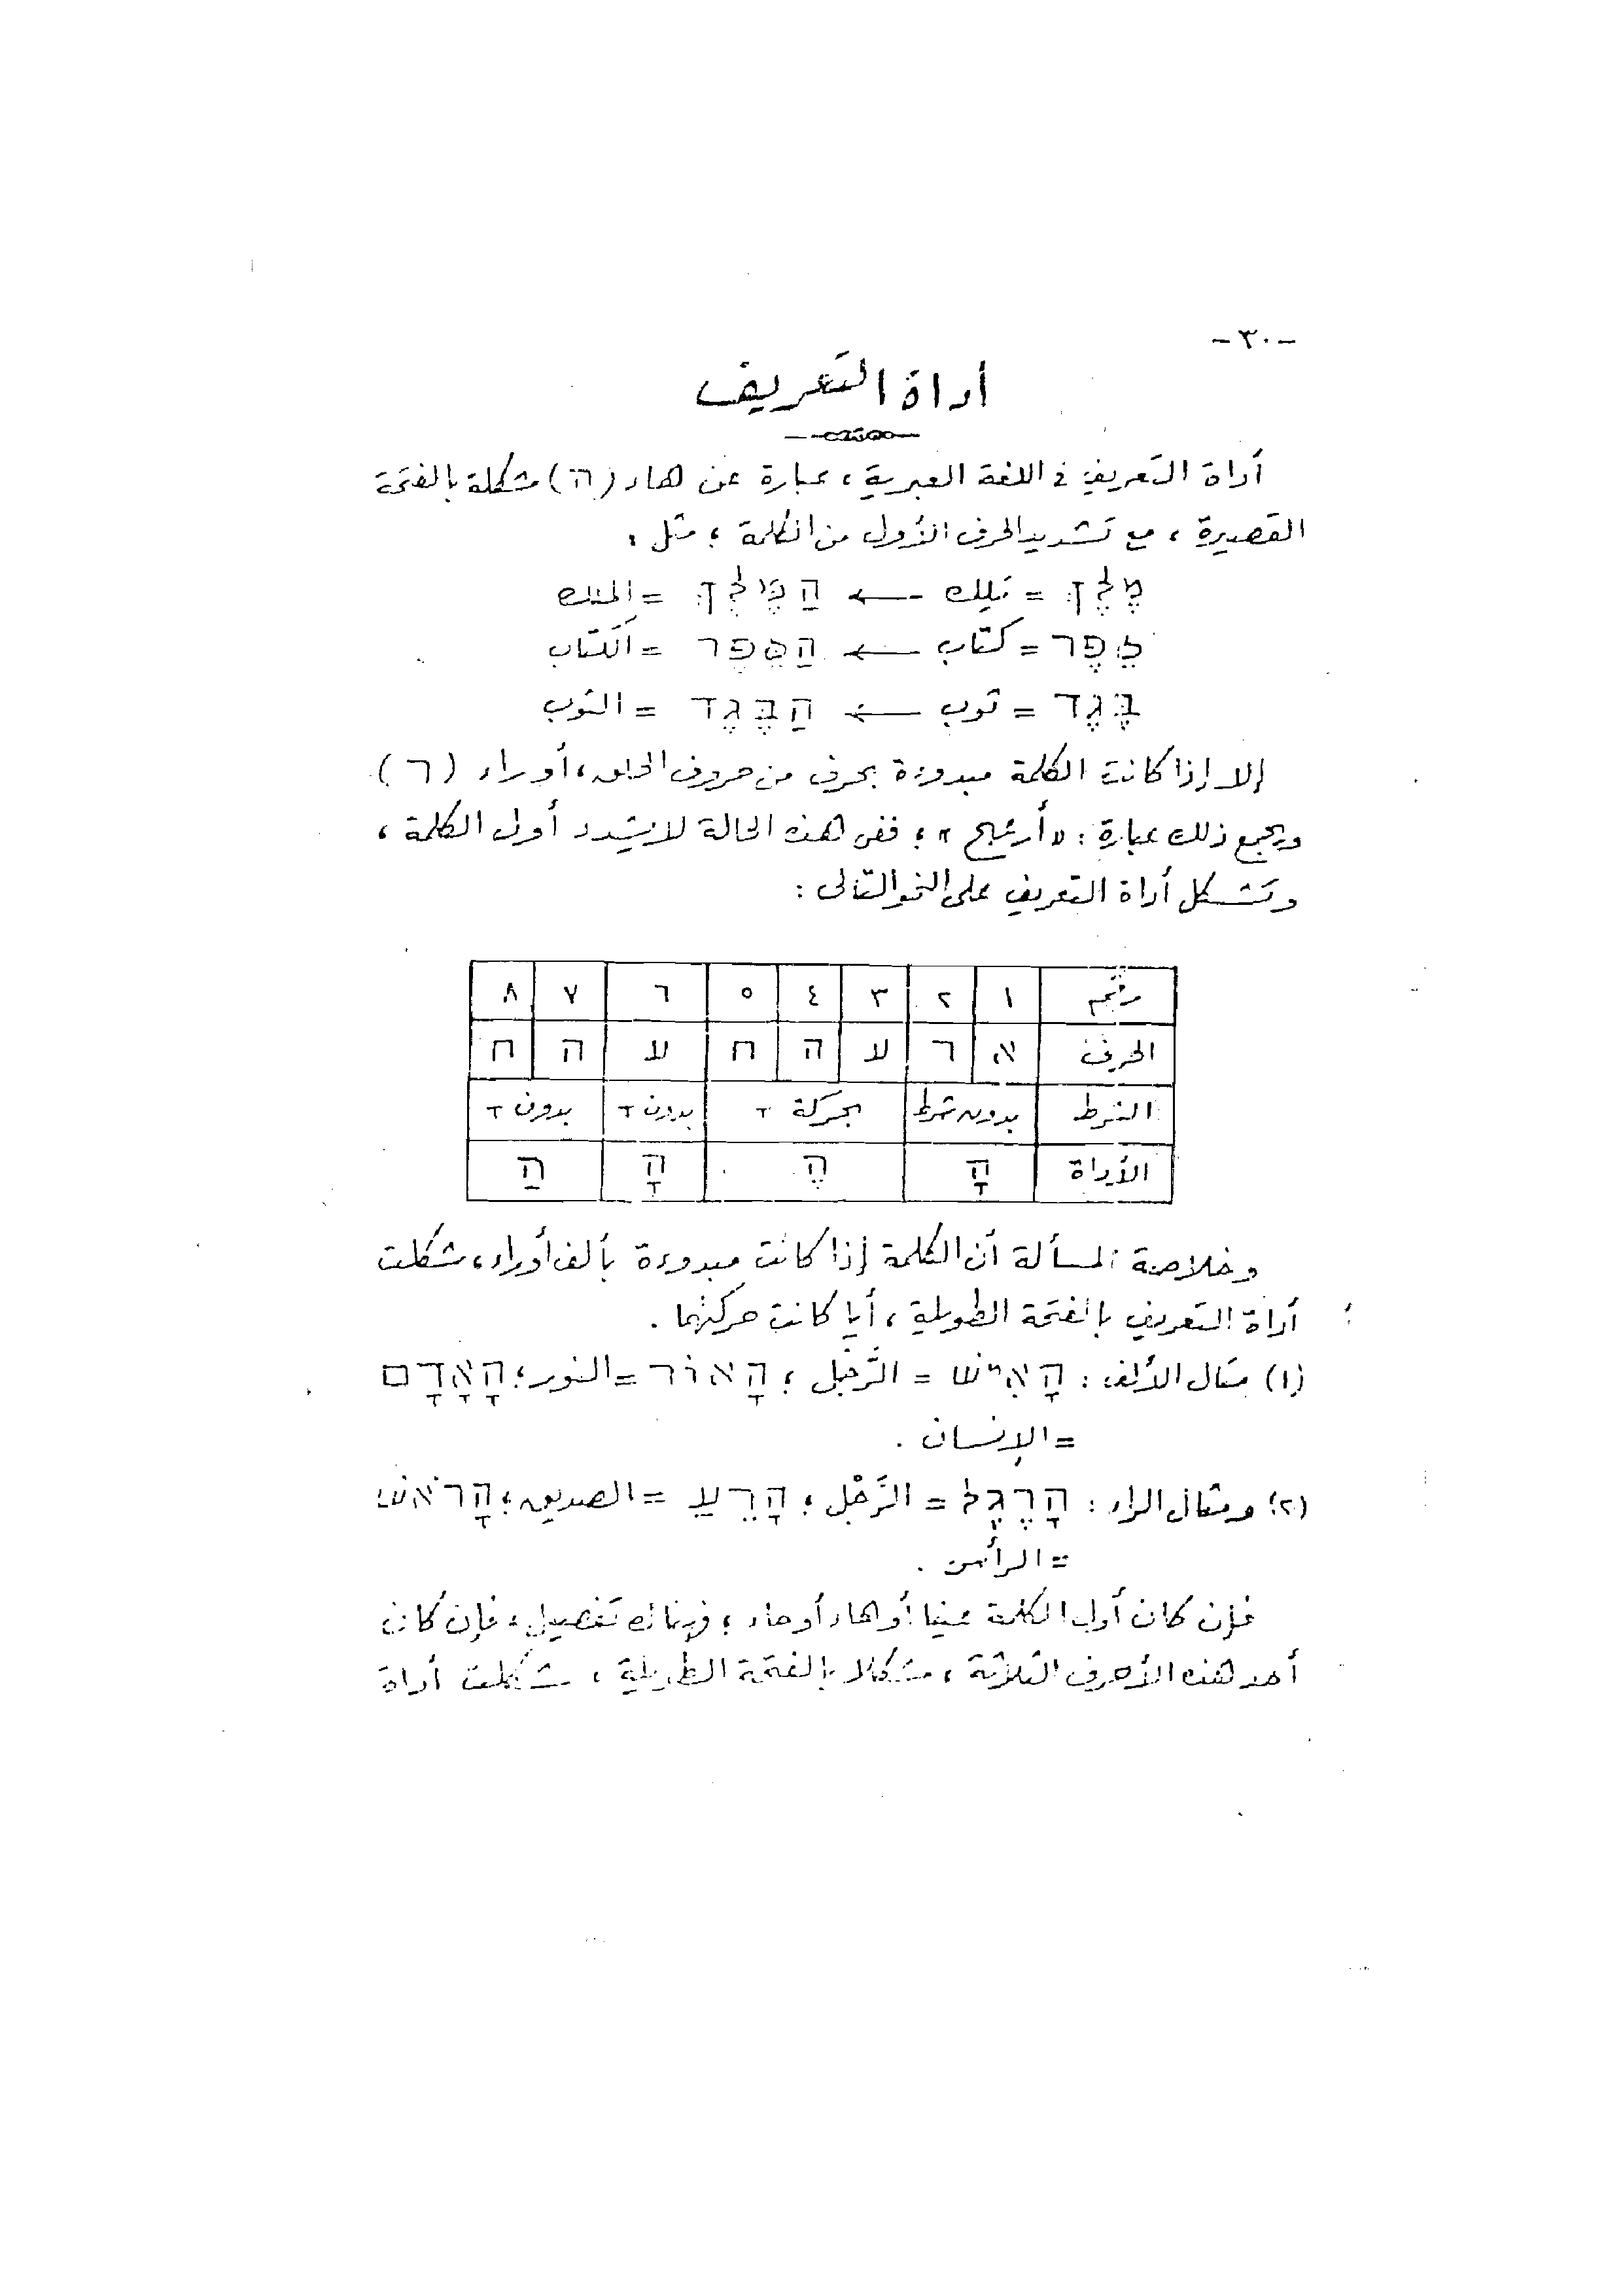 -٣٠-
أداة التَعريف
أداة التَعريف في اللغة العبرية، عبارة عن هاء (ה) مشكلة بالفتحة
القصيرة، مع تشديد الحرف الأول من الكلمة؛ مثل:
מֶלֶךְ = مَلِك ← הַמֶּלֶךְ = الملك
סֵפֶר = كتاب ← הַסֵּפֶר = الكتاب
בֶּגֶד = ثوب ← הַבֶּגֶד = الثوب
إلا إذا كانت الكلمة مبدوءة بحرف من حروف الحلق، أو راء (ר)
ويجمع ذلك عبارة: «أرعهح»؛ ففي هذه الحالة لا يشدد أول الكلمة،
وتشكل أداة التعريف على النحو التالى:
رقم ١ ٢ ٣ ٤ ٥ ٦ ٧ ٨
الحرف א ר ע ה ח ע ה ח
الشرط بدون شرط بحركة ָ بدون ָ بدون ָ
الأداة הָ הֶ הָ הַ
وخلاصة المسألة أن الكلمة إذا كانت مبدوءة بألف أو راء، شكلت
أداة التعريف بالفتحة الطويلة، أيا كانت حركتهما.
(١) مثال الألف: הָאִישׁ = الرَّجُل؛ הָאוֹר = النور؛ הָאָדָם
= الإنسان.
(٢) ومثال الراء: הָרֶגֶל = الرِّجْل؛ הָרֵעַ = الصديق؛ הָרֹאשׁ
= الرأس.
فإن كان أول الكلمة عينا أو هاء أو حاء؛ فهناك تَفصيل، فإن كان
أحد هذه الأحرف الثلاثة، مشكلا بالفتحة الطويلة، شكلت أداة